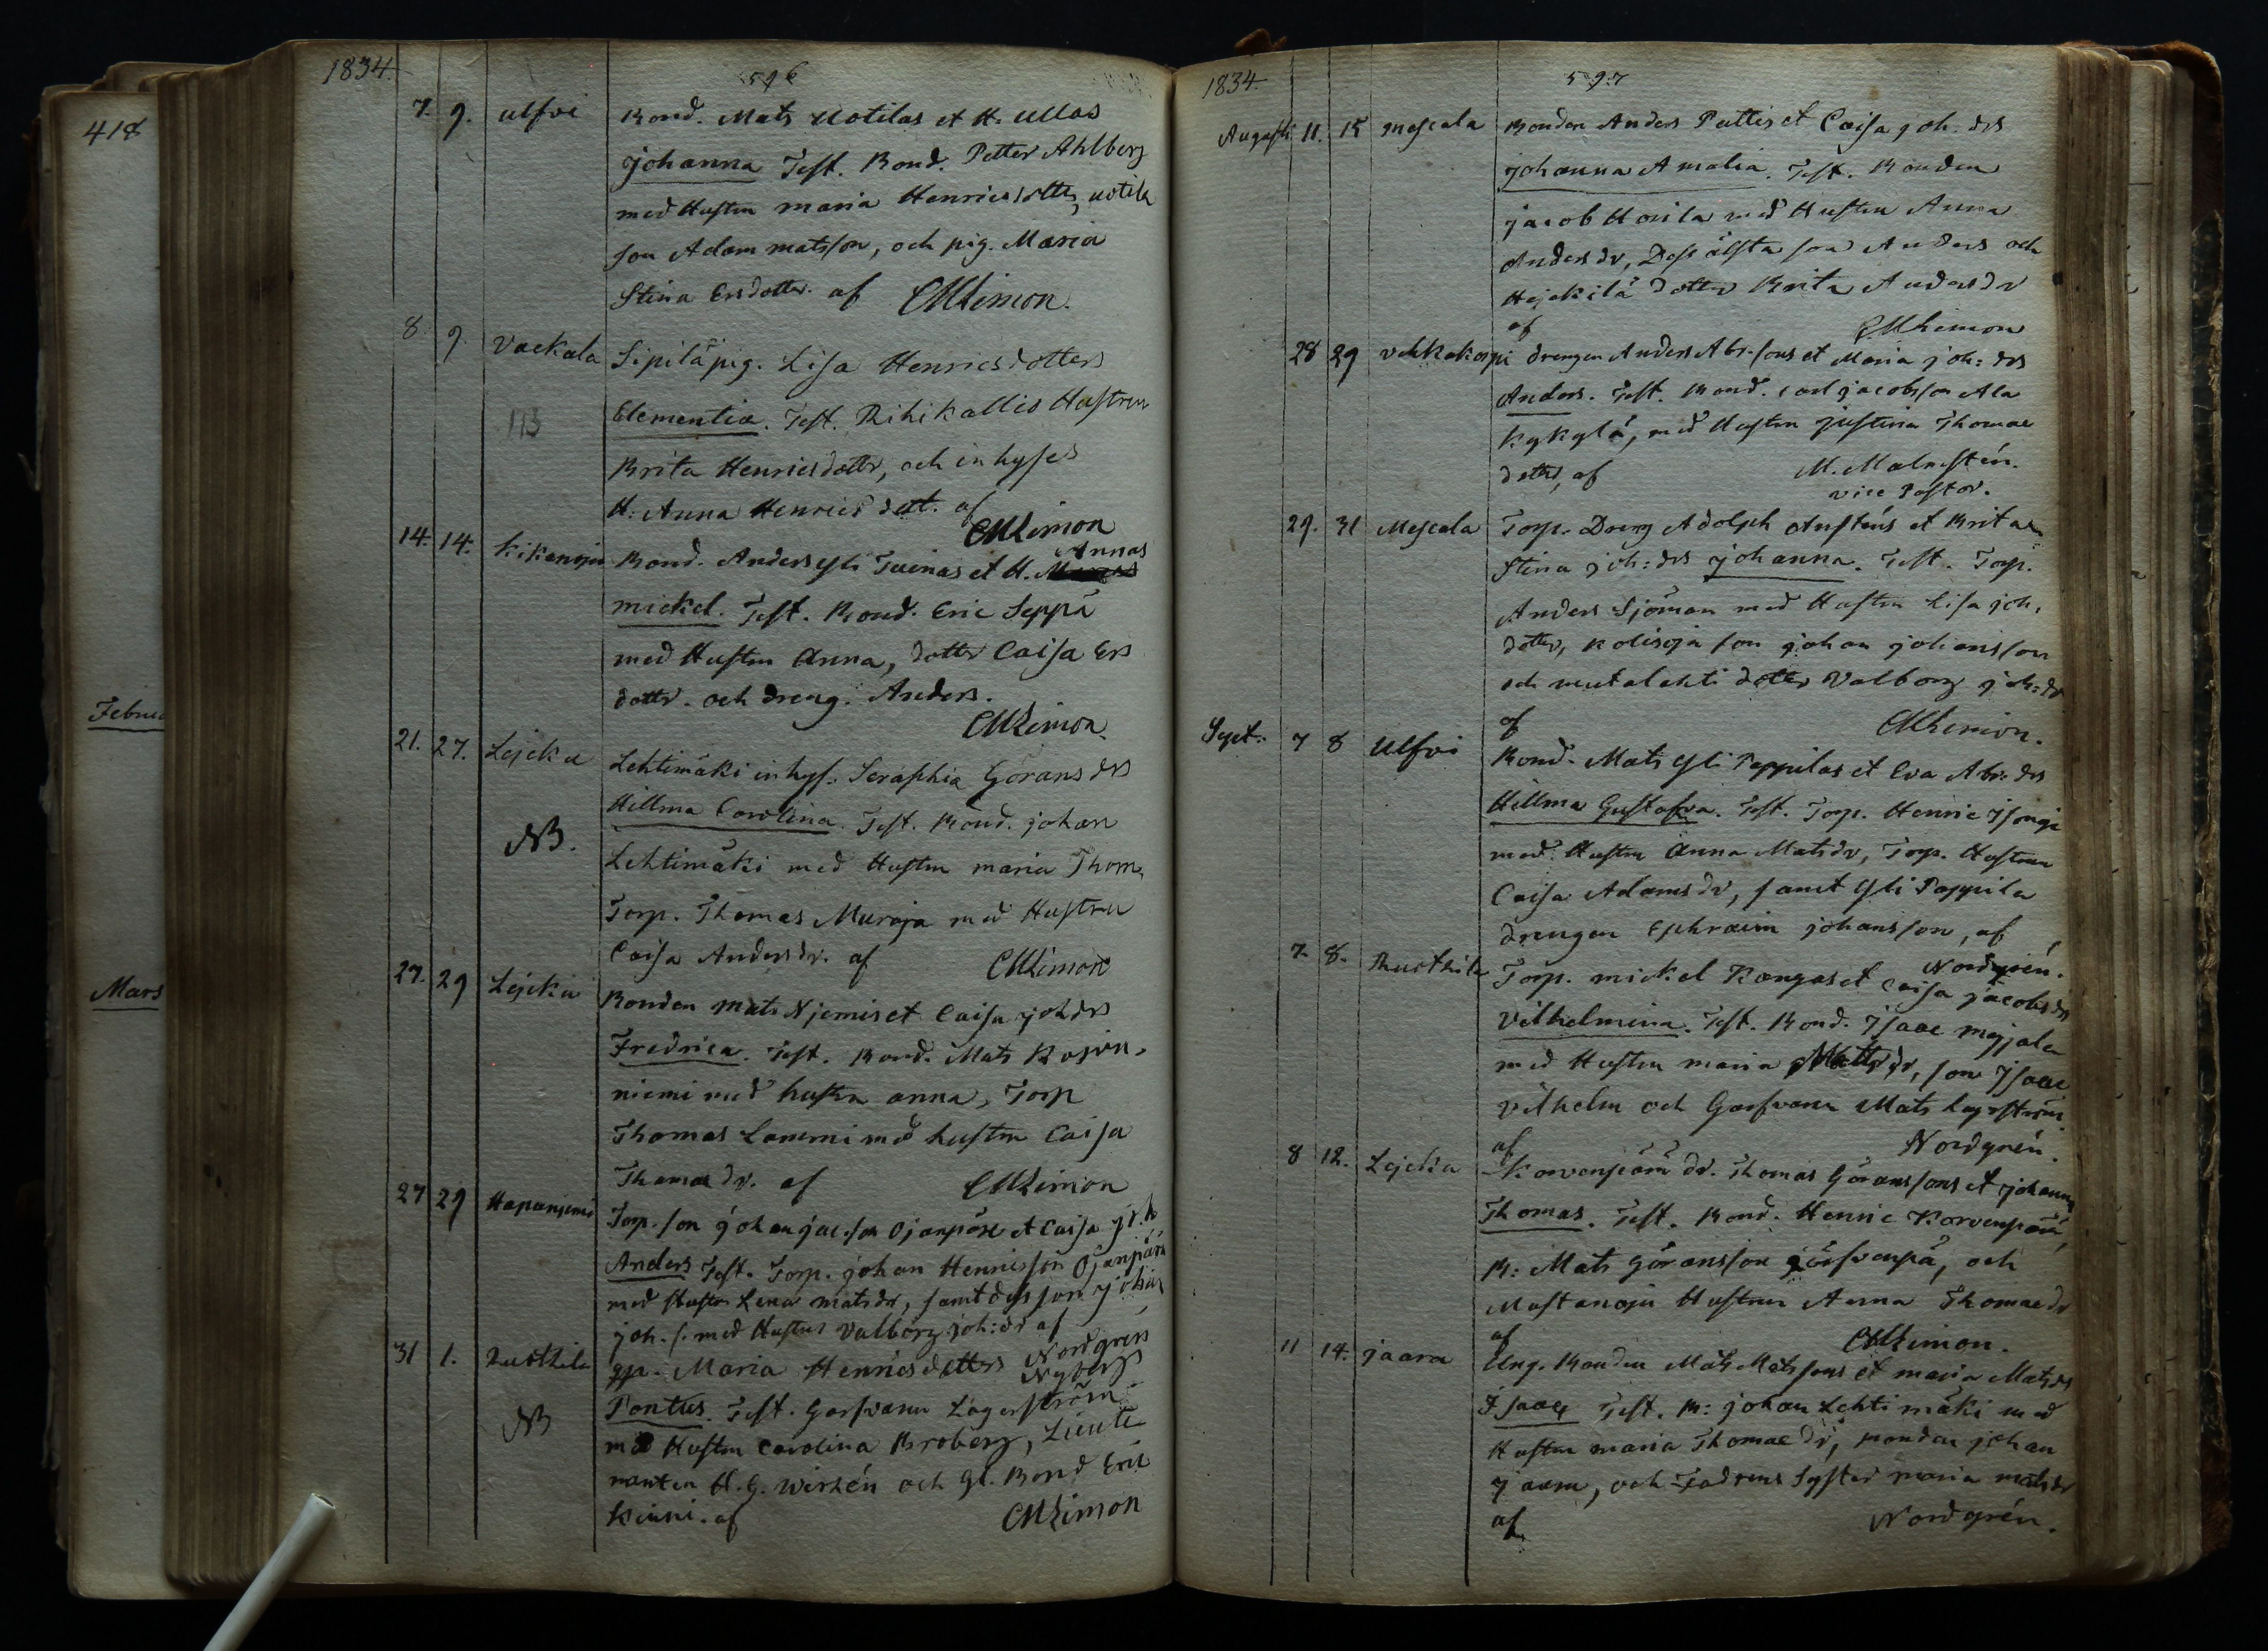 418
Februa
Mars
1834.
596
7. 9. Ulfvi Bond. Mats Uotilas et H. Ullas
Johanna Test. Bond. Petter Ahlberg
med Hustru Maria Henricsdotter, Uotila
son Adam Matsson, och pig. Maria
Stina Ersdotter. af CMLimon.
8 9. Vackala Sipilä pig. Lisa Henricsdotters
113
Clementia. Test. Rihikallio Hustrun
Brita Henricsdotter, och inhyses
H: Anna Henricsdott. af
CMLimon
14. 14. Kikanoja Bond. Anders Yli Tuinas et H. Annas
Mickel. Test. Bond. Eric Seppä
med Hustru Anna, dotter Caisa Ers
dotter. och dreng. Anders.
CMLimon.
21. 27. Lejeku Lehtimäki inhys. Seraphia Görans drs
Hillma Carolina. Test. Bond. Johan
NB.
Lehtimäki med Hustru Maria Thom.
Torp. Thomas Muroja med Hustru
Caisa Andersdr. af CMLimon
27. 29 Lejeku Bonden Mats Njemis et Caisa Joh drs
Fredrica. Test. Bond. Mats
niemi med hustru Anna, Torp
Thomas Lammi med hustru Caisa
Thomae dr. af CMLimon
27 29 Hapaniemi Torp. son Johan Jac. son Ojanpäre et Caisa
Anders Test. Torp. Johan Henricsson Ojanpärä
med Hustru Lena Matsdr, samt dess son Johan
Joh. s. med Hustru Valborg Joh: dr af
Nordgren
31 1. Rusthila gp. Maria Henricsdotters Nybergs
Pontus. Test. Garfvaren Lagerström
NB
med Hustru Carolina Broberg, Lieute
nanten H. G. Wirzén och Gl. Bond Eric
Kinni. af CMLimon
1834.
597
Augusti 11. 15 Mescala Bonden Anders Pattis et Caisa Joh. drs
Johanna Amalia. Test. Bonden
Jacob Horila med Hustru Anna
Anders dr, Dess älsta son Anders och
Hejckilä dotter Brita Anders dr
af CMLimon
28 29 Vehkakorpi drengen Anders Abr. sons et Maria Joh: drs
Anders. Test. Bond. Carl Jacobsson Ala
Kykylä, med Hustru Justina Thomae
dotter, af M. Malmstén.
vice Pastor.
29. 31 Mescala Torp. Dreng Adolph Austéns et Brita
Stina Joh: drs Johanna. Test. Torp.
Anders Sjöman med Hustru Lisa Joh.
dotter, Kolisoja son Johan Johansson
och mutalahti dotter Valborg Joh: dr
af CMLimon.
Sept. 7 8 Ulfvi Bond. Mats Yli Pappilas et Eva Abr: drs
Hillma Gustafva. Test. Torp. Henric Isoaja
med Hustru Anna Matsdr, Torp. Hustrun
Caisa Adamsdr, samt Yli Pappila
drengen Ephraim Johansson, af
Nordgrén.
7. 8. Rusthila Torp. Mickel Kangas et Caisa Jacobsdrs
Vilhelmina. Test. Bond. Isaac Majjala
med Hustru Maria Mattsdr, son Isaac
Vilhelm och Garfvaren Mats Lagerström.
af Nordgrén.
8 12. Lejeku Korvenpää dr. Thomas Göranssons et Johanna
Thomas. Test. Bond. Henric Korvenpää,
B: Mats Göransson Järfvenpä, och
Mustanoja Hustrun Anna Thomae dr
af CMLimon.
11 14. Jaara Ung. Bonden Mats Matssons et Maria Matsdrs
Isaac Test. B: Johan Lehtimäki med
Hustru Maria Thomae dr, Bonden Johan
Jaara, och Fadrens Syster Maria Matsdr
af Nordgrén.